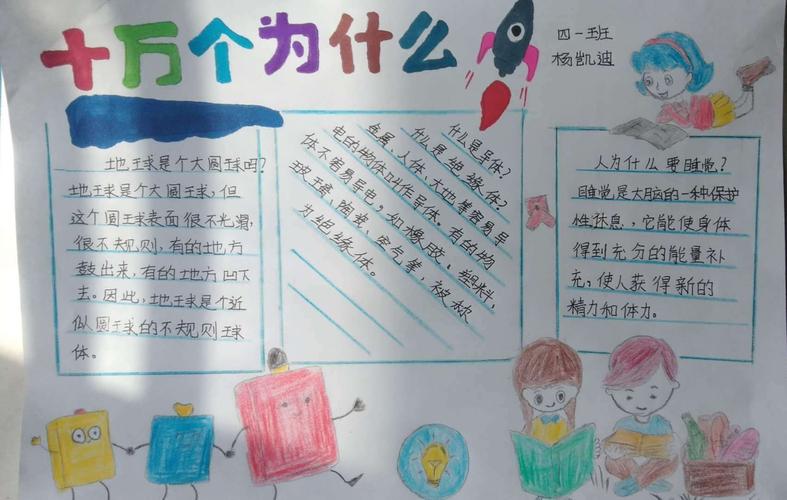 十万个为什么
四一班
杨凯迪
地球是个大圆球吗?
地球是个大圆球,但
这个圆球表面很不光滑,
很不规则,有的地方
鼓出来,有的地方凹下
去。因此,地球是个近
似圆球的不规则球
体。
什么是导体?
什么是绝缘体?
金属、人体、大地等容易导
电的物体叫作导体。有的物
体不容易导电,如橡胶、塑料、
玻璃、陶瓷、空气等,被称
为绝缘体。
人为什么要睡觉?
睡觉是大脑的一种保护
性休息,它能使身体
得到充分的能量补
充,使人获得新的
精力和体力。